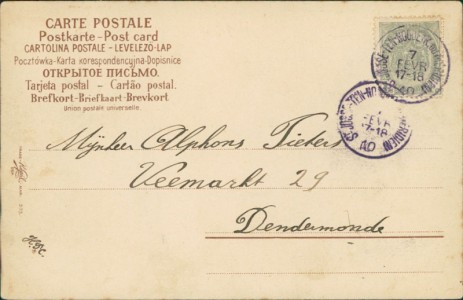 CARTE POSTALE
Postkarte - Post card
CARTOLINA POSTALE - LEVELEZO-LAP
Pocztówka - Karta korespondencyjna - Dopisnice
ОТКРЫТОЕ ПИСЬМО.
Tarjeta postal - Cartão postal.
Brefkort - Briefkaart - Brevkort.
Union postale universelle.
7
FEVR
17-18
10
FEVR
17-18
10
Mijnheer Alphons Tieters
Veemarkt 29
Dendermonde